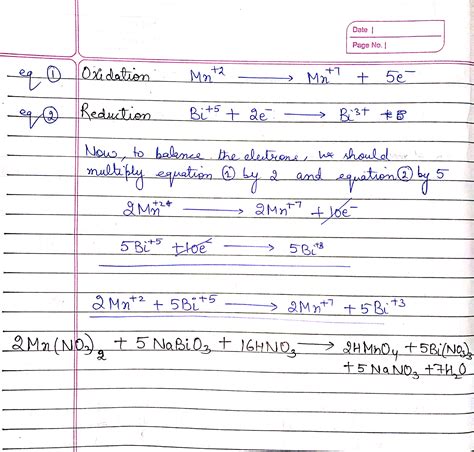 Date |
Page No. |
eq ① Oxidation Mn⁺² ⟶ Mn⁺⁷ + 5e⁻
eq ② Reduction Bi⁺⁵ + 2e⁻ ⟶ Bi³⁺
Now, to balance the electrons, we should
multiply equation ① by 2 and equation ② by 5
2Mn⁺² ⟶ 2Mn⁺⁷ + 10e⁻
5Bi⁺⁵ + 10e⁻ ⟶ 5Bi⁺³
2Mn⁺² + 5Bi⁺⁵ ⟶ 2Mn⁺⁷ + 5Bi⁺³
2Mn(NO₃)₂ + 5NaBiO₃ + 16HNO₃ ⟶ 2HMnO₄ + 5Bi(NO₃)₃
+ 5NaNO₃ + 7H₂O